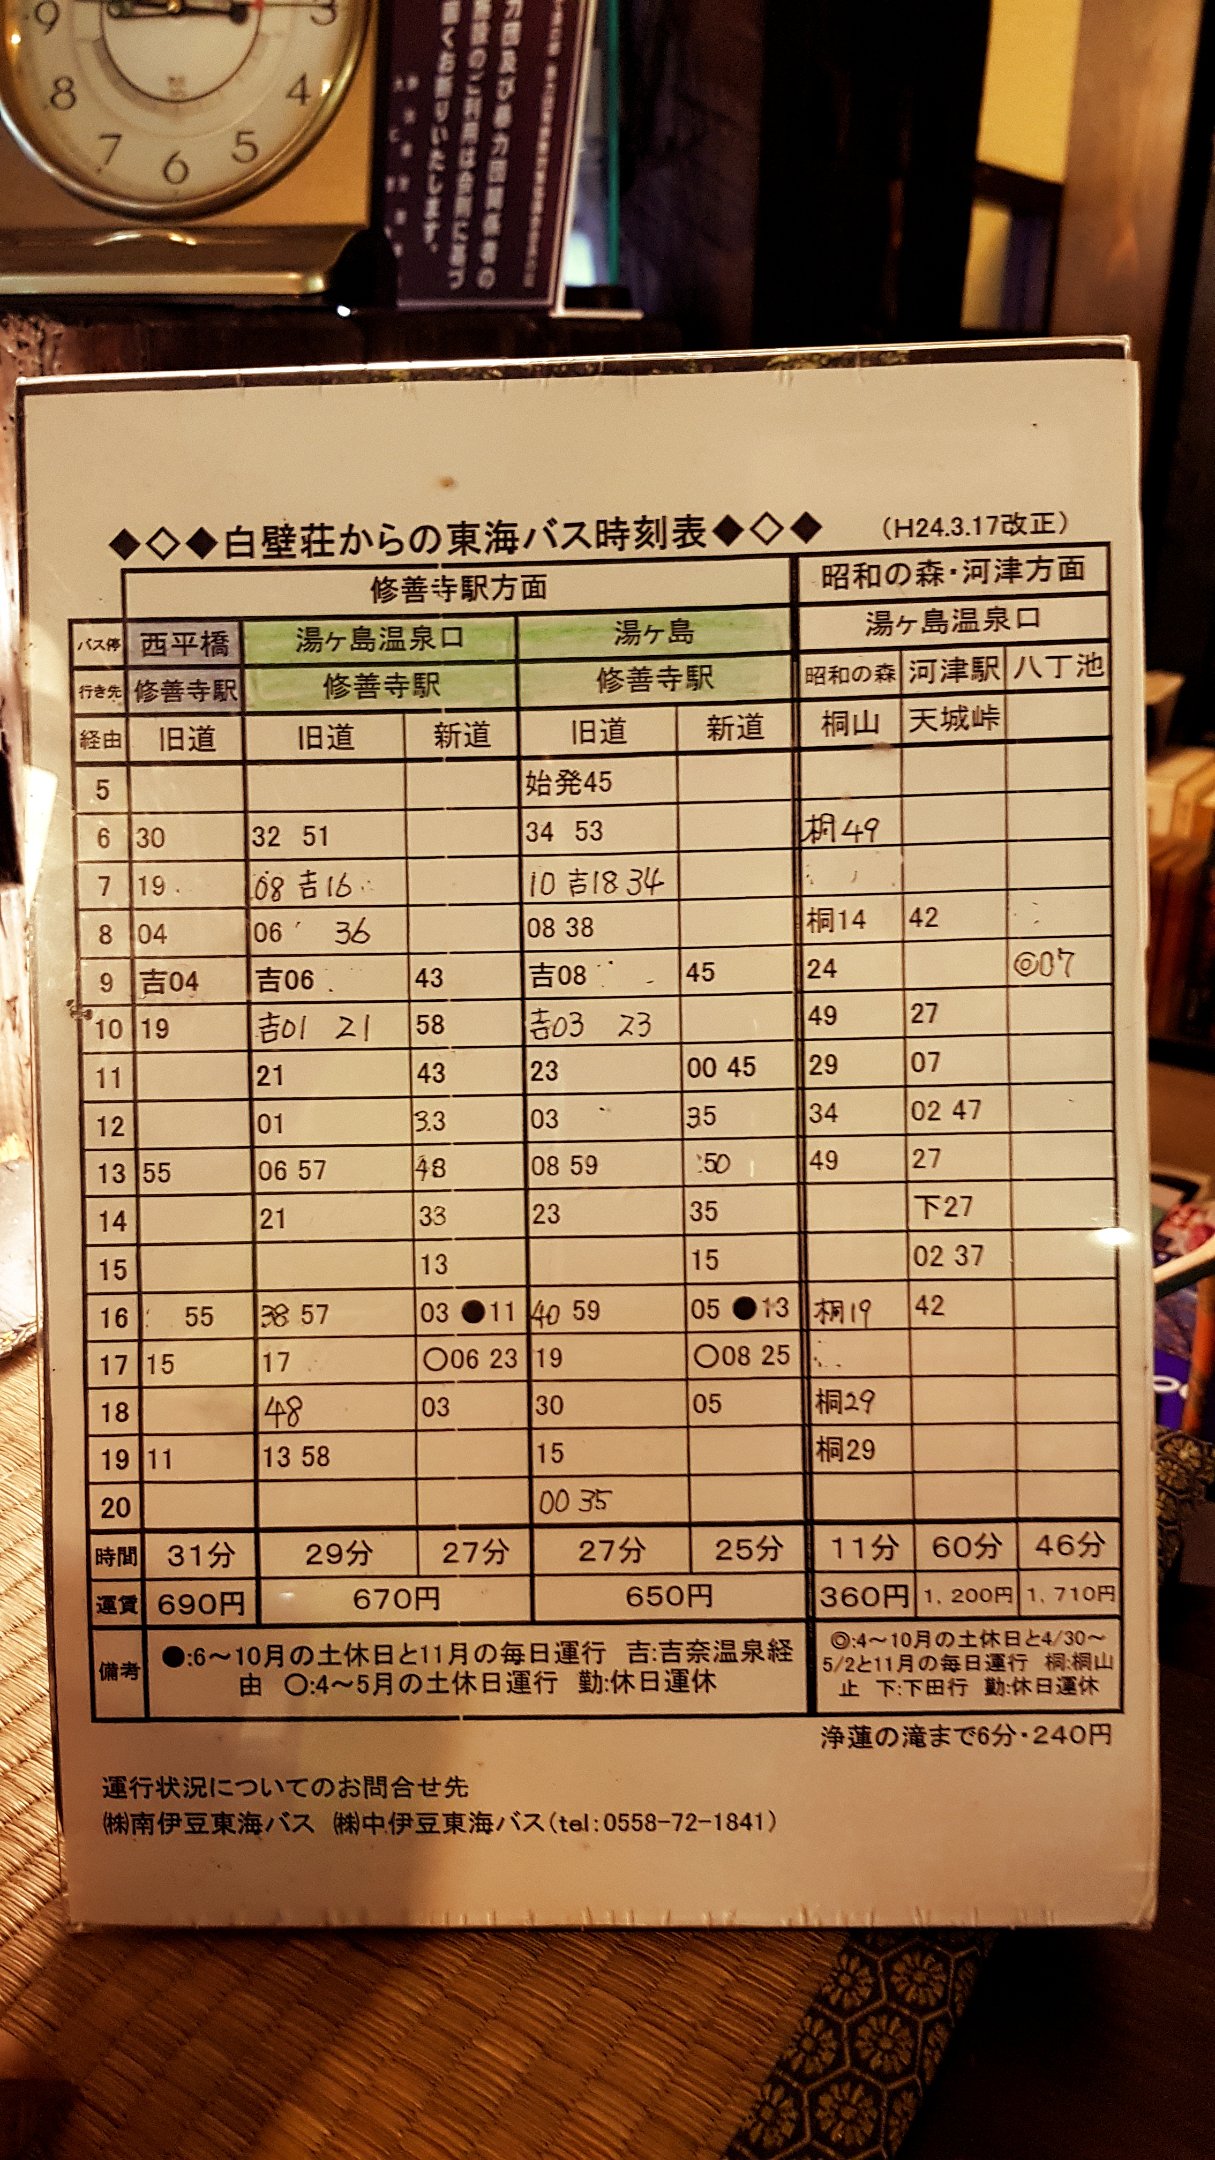 9 3
8 4
7 6 5
力団及び暴力団関係者の
施設のご利用は約款に基づ
固くお断りいたします。
◆◇◆白壁荘からの東海バス時刻表◆◇◆ （H24.3.17改正）
修善寺駅方面 昭和の森・河津方面
バス停 西平橋 湯ヶ島温泉口 湯ヶ島 湯ヶ島温泉口
行き先 修善寺駅 修善寺駅 修善寺駅 昭和の森 河津駅 八丁池
経由 旧道 旧道 新道 旧道 新道 桐山 天城峠
5 始発45
6 30 32 51 34 53 桐49
7 19 08 吉16 10 吉18 34
8 04 06 36 08 38 桐14 42
9 吉04 吉06 43 吉08 45 24 ◎07
10 19 吉01 21 58 吉03 23 49 27
11 21 43 23 00 45 29 07
12 01 33 03 35 34 02 47
13 55 06 57 48 08 59 50 49 27
14 21 33 23 35 下27
15 13 15 02 37
16 55 38 57 03 ●11 40 59 05 ●13 桐19 42
17 15 17 〇06 23 19 〇08 25
18 48 03 30 05 桐29
19 11 13 58 15 桐29
20 00 35
時間 31分 29分 27分 27分 25分 11分 60分 46分
運賃 690円 670円 650円 360円 1,200円 1,710円
備考 ●:6～10月の土休日と11月の毎日運行 吉:吉奈温泉経
由 〇:4～5月の土休日運行 勤:休日運休
◎:4～10月の土休日と4/30～
5/2と11月の毎日運行 桐:桐山
止 下:下田行 勤:休日運休
浄蓮の滝まで6分・240円
運行状況についてのお問合せ先
㈱南伊豆東海バス ㈱中伊豆東海バス（tel:0558-72-1841）